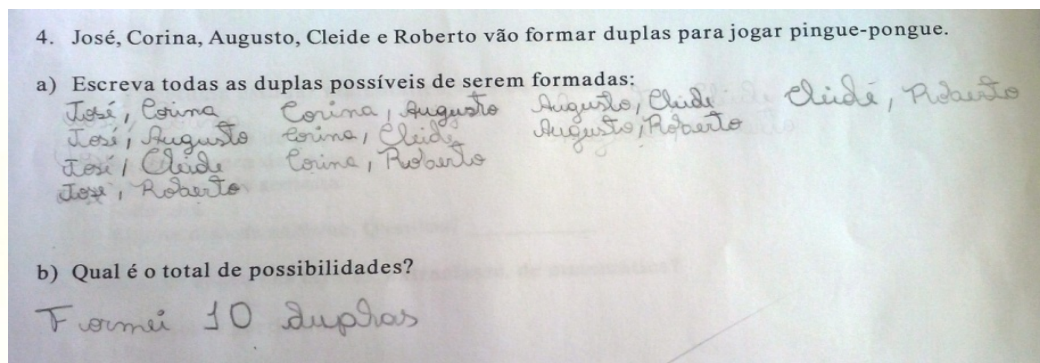 4. José, Corina, Augusto, Cleide e Roberto vão formar duplas para jogar pingue-pongue.
a) Escreva todas as duplas possíveis de serem formadas:
José, Corina Corina, Augusto Augusto, Cleide Cleide, Roberto
José, Augusto Corina, Cleide Augusto, Roberto
José, Cleide Corina, Roberto
José, Roberto
b) Qual é o total de possibilidades?
Formei 10 duplas